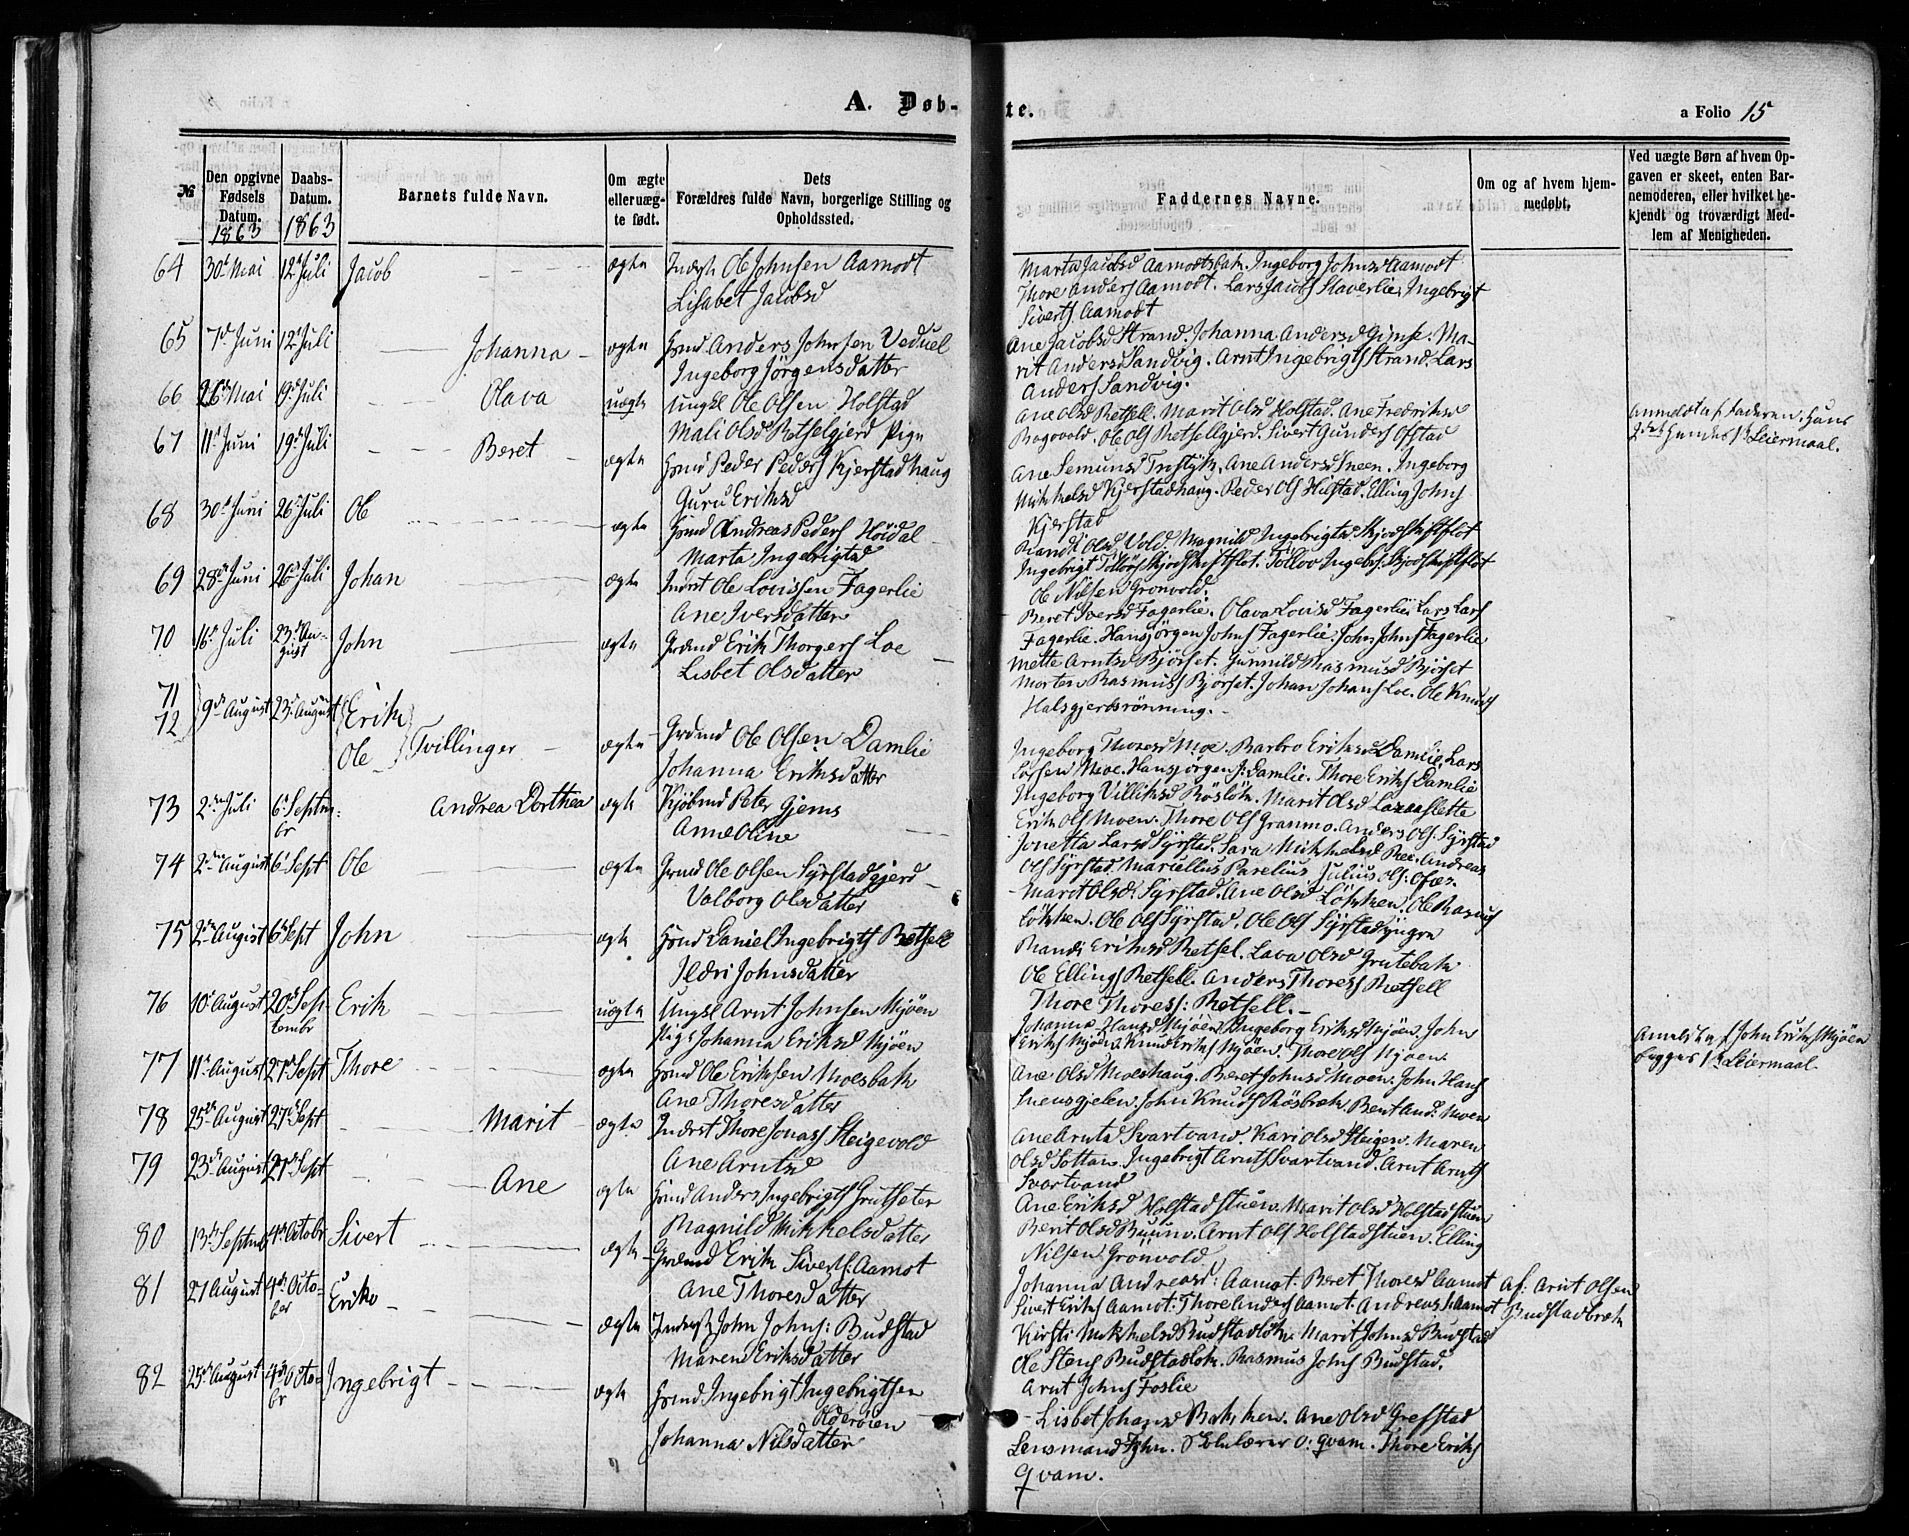 A. Døb-
te.
a Folio 15
№
Den opgivne Fødsels Datum. 1863
Daabs-Datum. 1863
Barnets fulde Navn.
Om ægte eller uægte født.
Dets Forældres fulde Navn, borgerlige Stilling og Opholdssted.
Faddernes Navne.
Om og af hvem hjemmedøbt.
Ved uægte Børn af hvem Opgaven er skeet, enten Barnemoderen, eller hvilket bekjendt og troværdigt Medlem af Menigheden.
64 30 Mai 12 Juli Jacob ægte Inderst Ole Johnsen Aamodt
Lisabet Jacobsd
Marta Jacobsd Aamodtsbak. Ingeborg Johnsd Aamodt
Thore Anders Aamodt. Lars Jacobs Slaverlie, Ingebrigt
Siverts Aamodt
65 7 Juni 12 Juli Johanna ægte Hmd Anders Johnsen Veduel
Ingeborg Jörgensdatter
Ane Jacobsd Strand. Johanna Andersd Gimse. Ma-
rit Andersd Sandvig. Arnt Ingebrigts Strand. Lars
Anders Sandvig.
66 26 Mai 19 Juli Olava uægte Ungkl Ole Olsen Holstad
Mali Olsd Retselgjerd Pige
Ane Olsd Retsell. Marit Olsd Holstad. Ane Fredriksd
Bogovold. Ole Ols Retsellgjerd. Sivert Gunders Ofstad
Anmeldt af Faderen. Hans
2det Hendes 1 Leiermaal.
67 11 Juni 19 Juli Beret ægte Hmd Peder Peders Kjerstadhaug
Guru Eriksd
Ane Semunsd Trostyk. Ane Andersd Sneen. Ingeborg
Mikkelsd Kjerstadhaug. Peder Ols Hilstad. Elling Johns
Kjerstad
68 30 Juni 26 Juli Ole ægte Hmd Andreas Peders Höidal
Marta Ingebrigtsd
Randi Olsd Vold. Magnild Ingebrigtsd Skjodskiftflot
Ingebrigt Tollövs Skjodskiftflot. Tollov Ingebr. Skjodskiftflot
Ole Nilsen Gronvold.
69 28 Juni 26 Juli Johan ægte Inderst Ole Louissen Fagerlie
Ane Iversdatter
Beret Iversd Fagerlie. Olava Louisd Fagerlie. Lars Lars
Fagerlie. Hansjörgen Johns Fagerlie. John Johns Fagerlie
70 16 Juli 23 August John ægte Grdmd Erik Thorgers Loe
Lisbet Olsdatter
Mette Arntsd Bjørset. Gunnild Rasmusd Bjørset
Morten Rasmuss Bjørset. Johan Johans Loe. Ole Knuds
Halsgjerdsrönning.
71
72 9 August 23 August Erik
Ole Tvillinger ægte Grdmd Ole Olsen Damlie
Johanna Eriksdatter
Ingeborg Thoresd Moe. Barbro Eriksd Damlie. Lars
Larsen Moe. Hansjörgen J. Damlie. Thore Eriks Damlie
Ingeborg Villiksd Röslök. Marit Olsd Slette
Erik Ols Moen. Thore Ols Granmo. Anders Ols. Syrstad
73 2 Juli 6 Septembr Andrea Dorthea ægte Kjöbmd Peter Gjems
Anne Oline
Jonetta Larsd Syrstad. Sara Mikkelsd Ree. Andreas
Ols Syrstad. Marcellus Parelius. Julius Ols.
74 2 August 6 Sept Ole ægte Grmd Ole Olsen Syrstadgjerd
Valborg Olsdatter
Marit Olsd. Syrstad. Ane Olsd Lökken. Ole Rasmus
Lökken. Ole Ols Syrstad. Ole Ols Syrstad yngre
75 2 August 6 Sept John ægte Hmd Daniel Ingebrigts Retsell
Ildri Johnsdatter
Randi Eriksd Retsel. Lava Olsd Grutebak
Ole Ellings Retsell. Anders Thoress Retsell
Thore Thoress: Retsell.
76 10 August 20 September Erik uægte Ungkl Arnt Johnsen Mjøen
Pige Johanna Eriksd Mjøen
Johanna Hansd Mjøen, Ingeborg Eriksd Mjøen. John
Eriks Mjøen. Knud Eriks Mjøen. Thore Ols Mjøen.
Anmeldt af John Eriks Mjøen
begges 1 Leiermaal.
77 11 August 27 Sept Thore ægte Hmd Ole Eriksen Moesbak
Ane Thoresdatter
Ane Olsd Moeshaug. Beret Johnsd Moen. John Hans
Sneusgjelen. John Knuds Rösbræk. Bent And. Moen
78 25 August 27 Sept Marit ægte Inderst Thore Jonass Steigevold
Ane Arntsd
Ane Arntsd Svartvand. Kari Olsd Steigen. Maren
Olsd Sottan. Ingebrigt Arnts Svartvand. Arnt Arnts
Svartvand
79 23 August 27 Sept Ane ægte Hmd Anders Ingebrigts Grutseter
Magnild Mikkelsdatter
Ane Eriksd Holstadstuen. Marit Olsd Holstadstuen
Berit Olsd Buunv. Arnt Ols Holstadstuen. Elling
Nilsen Grönvold
80 13 Septembr 4 Octobr Sivert ægte Grdmd Erik Siverts: Aamot
Ane Thoresdatter
Johanna Andreasd: Aamot. Beret Thoresd Aamot
Sivert Eriks Aamot: Thore Anders Aamot. Andreas S. Aamot
81 27 August 4 October Eriko ægte Inderst John Johns: Budstad
Maren Eriksdatter
Kirsti Mikkelsd Budstadlök. Marit Johnsd Budstad
Ole Stens Budstadlök. Rasmus Johns Budstad.
Arnt Johns Foslie
Af: Arnt Olsen
Budstadbræk
82 25 August 4 Octobr Ingebrigt ægte Hmd Ingebrigt Ingebrigtsen
Olderøien
Johanna Nilsdatter
Lisbet Johansd Bakken. Ane Olsd Grefstad
Lensmand Fghn. Skolelærer O: Qvam. Thore Eriks
Qvam.